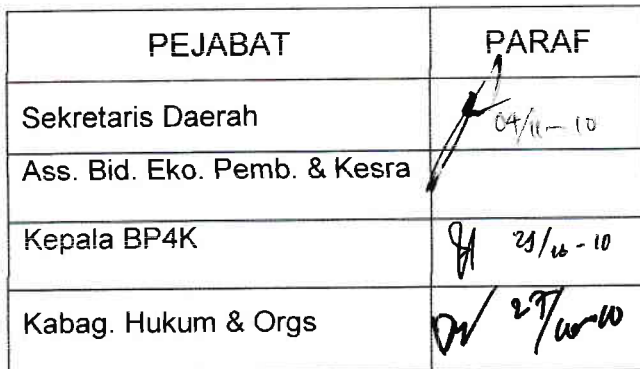 PEJABAT PARAF
Sekretaris Daerah 04/11-10
Ass. Bid. Eko. Pemb. & Kesra
Kepala BP4K
Kabag. Hukum & Orgs 27/10-10